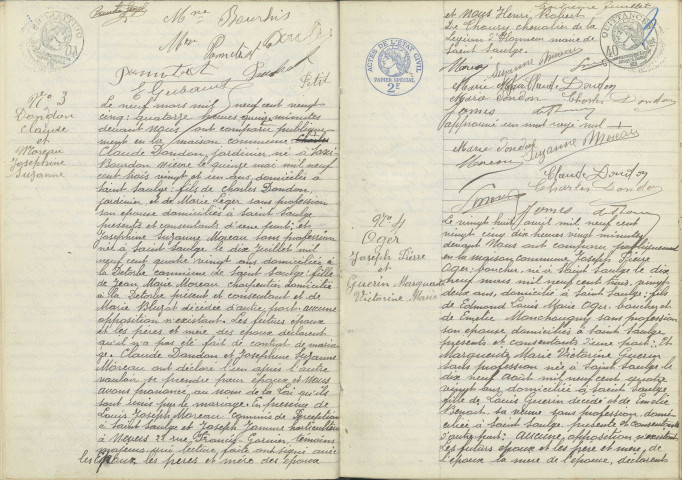 Mne Bourdis
Petit
N° 3
Dondon
Claude
et
Moreau
Josephine
Suzanne
Le neuf mars mil neuf cent vingt
cinq quatorze heures quinze minutes
devant Nous ont comparu publique-
ment en la maison commune Charles
Claude Dondon, jardinier né à Saxi
Bourdon nièvre le quinze mai mil neuf
cent trois vingt et un ans, domicilié à
Saint Saulge: fils de Charles Dondon,
jardinier, et de Marie Leger sans profession
son épouse domiciliés à Saint Saulge
présents et consentants d'une part; et
Josephine Suzanne Moreau sans profession
née à Saint Saulge le dix juillet mil
neuf cent quatre vingt ans domiciliée à
la Detorbe commune de Saint Saulge: fille
de Jean Marie Moreau charpentier domicilié
à la Detorbe présent et consentant et de
Marie décédée d'autre part: aucune
opposition n'existant. Les futurs époux
et les pères et mère des époux déclarent
qu'il n'a pas été fait de contrat de maria-
ge. Claude Dondon et Josephine Suzanne
Moreau ont déclaré l'un après l'autre
vouloir se prendre pour époux et Nous
avons prononcé au nom de la Loi qu'ils
sont unis par le mariage. En présence de
Louis Joseph Moreau Commis de Perception
à Saint Saulge et Joseph Jammes horticulteur
à Nevers 22 rue Francis Garnier, témoins
majeurs, qui lecture faite ont signé avec
les époux, les pères et mère des époux
ACTES DE L'ÉTAT CIVIL
PAPIER SPÉCIAL
2F
feuillet
et Nous Henri Robert
Le Thoury chevalier de la
Légion d'Honneur maire de
Saint Saulge.
Suzanne Moreau
Claude Dondon
Charles Dondon
approuvé un mot rayé nul
Marie Dondon
Moreau Suzanne Moreau
Claude Dondon
Charles Dondon
N° 4
Oger
Joseph Pierre
et
Guerin Marguerite
Victorine Marie
Le vingt huit avril mil neuf cent
vingt cinq dix heures vingt minutes
devant Nous ont comparu publiquement
en la maison commune Joseph Pierre
Oger boucher, né à Saint Saulge le dix
neuf mars mil neuf cent trois, vingt
deux ans, domicilié à Saint Saulge: fils
de Edmond Louis Marie Oger boucher et
de Emelie sans profession
son épouse domiciliés à Saint Saulge
présents et consentants d'une part: Et
Marguerite Marie Victorine Guerin
sans profession née à Saint Saulge le
dix neuf août mil neuf cent quatre
vingt ans domiciliée à Saint Saulge
fille de Louis Guerin décédé et de Emelie
Benoit sa veuve sans profession, domi-
ciliée à Saint Saulge présente et consentante
d'autre part: aucune opposition n'existant
les futurs époux et les père et mère, de
l'époux la mère de l'épouse, déclarent